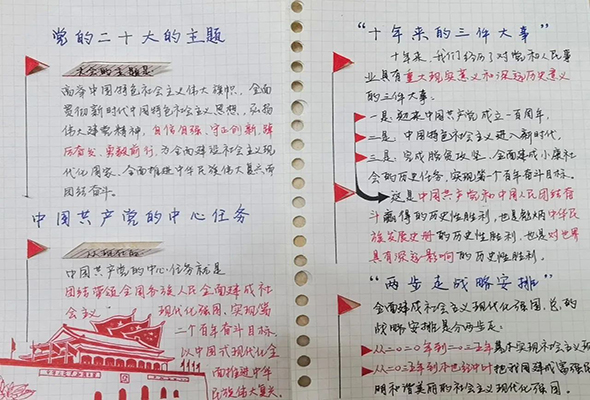 党的二十大的主题
大会的主题是
高举中国特色社会主义伟大旗帜，全面
贯彻新时代中国特色社会主义思想，弘扬
伟大建党精神，自信自强、守正创新，踔
厉奋发、勇毅前行，为全面建设社会主义现
代化国家、全面推进中华民族伟大复兴而
团结奋斗。
中国共产党的中心任务
中国共产党的中心任务就是
团结带领全国各族人民全面建成社会
主义现代化强国、实现第
二个百年奋斗目标，
以中国式现代化全
面推进中华
民族伟大复兴。
“十年来的三件大事”
十年来，我们经历了对党和人民事
业具有重大现实意义和深远历史意义
的三件大事：
一是 迎来中国共产党成立一百周年，
二是 中国特色社会主义进入新时代，
三是 完成脱贫攻坚、全面建成小康社
会的历史任务，实现第一个百年奋斗目标。
这是中国共产党和中国人民团结奋
斗赢得的历史性胜利，也是彪炳中华民
族发展史册的历史性胜利，也是对世界
具有深远影响的历史性胜利。
“两步走战略安排”
全面建成社会主义现代化强国，总的
战略安排是分两步走：
从二〇二〇年到二〇三五年基本实现社会主义现
从二〇三五年到本世纪中叶把我国建成富强民
明和谐美丽的社会主义现代化强国。